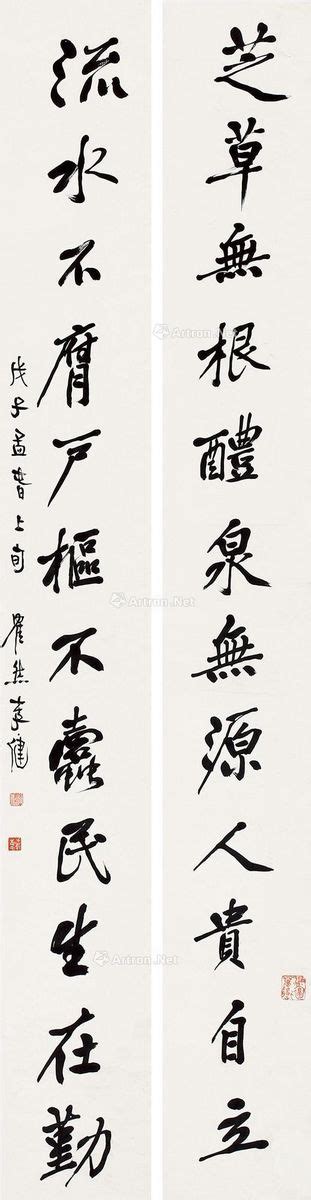 芝草無根醴泉無源人貴自立
流水不腐戶樞不蠹民生在勤
戊子孟春上旬 瞿然李健
Artron.Net
Artron.Net
Artron.Net